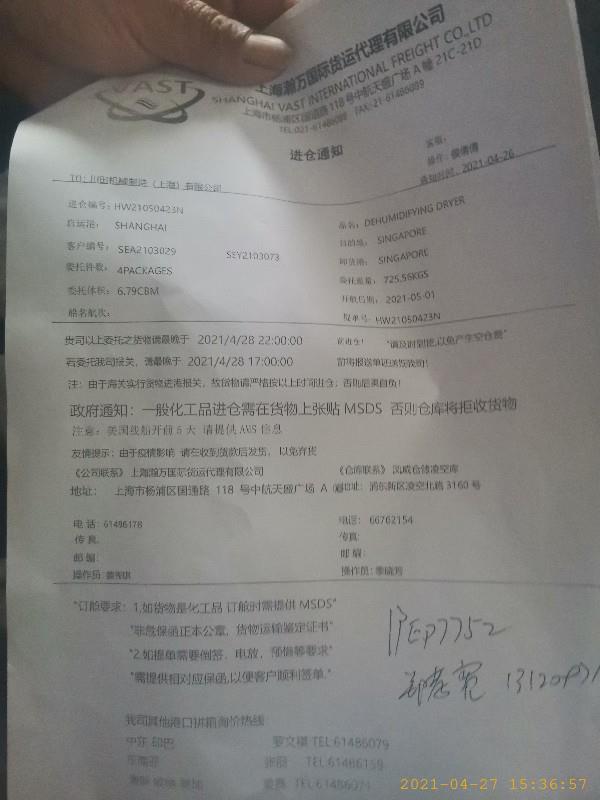 VAST
上海瀚万国际货运代理有限公司
SHANGHAI VAST INTERNATIONAL FREIGHT CO.,LTD
上海市杨浦区国通路 118 号中航天盛广场 A 幢 21C-21D
TEL:021-61486088 FAX:21-61486089
进仓通知
客服:
操作:
通知时间: 2021-04-26
TO: 川田机械制造（上海）有限公司
进仓编号: HW21050423N
品名: DEHUMIDIFYING DRYER
启运港: SHANGHAI
目的港: SINGAPORE
客户编号: SEA2103029 SEY2103073
卸货港: SINGAPORE
委托件数: 4PACKAGES
委托重量: 725.56KGS
委托体积: 6.79CBM
开航日期: 2021-05-01
船名航次:
提单号: HW21050423N
贵司以上委托之货物请最晚于 2021/4/28 22:00:00 前进仓! "请及时到提,以免产生空仓费"
若委托我司报关，请最晚于 2021/4/28 17:00:00 前将报送单证送给我司!
注：由于海关实行货物进港报关，故货物请严格按以上时间进仓，否则后果自负!
政府通知：一般化工品进仓需在货物上张贴 MSDS 否则仓库将拒收货物
注意：美国线船开前 5 天 请提供 AMS 信息
友情提示：由于疫情影响 请在收到货款后发货，以免弃货
《公司联系》上海瀚万国际货运代理有限公司 《仓库联系》凤威仓储凌空库
地址： 上海市杨浦区国通路 118 号中航天盛广场 A 地址: 浦东新区凌空北路 3160 号
电 话: 61486178
电话: 66762154
传 真:
传真:
邮 编:
邮 编:
操作员:
操作员: 季晓芳
"订舱要求: 1.如货物是化工品 订舱时需提供 MSDS"
"非危保函正本公章，货物运输鉴定证书"
"2.如提单需要倒签，电放，预借等要求"
"需提供相对应保函,以便客户顺利签单."
沪EP7752
我司其他港口拼箱询价热线:
中东 印巴 罗文祺 TEL:61486079
东南亚 张丽 TEL:61486159
TEL:61486071
2021-04-27 15:36:57